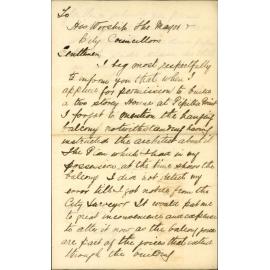 To
His Worship the Mayor &
City Councillors
Gentlemen
I beg most respectfully
to inform you that when I
applied for permission to build
a two storey house at Point
I forgot to mention the hanging
balcony notwithstanding having
instructed the architect about it
The Plan which I have in my
possession at the time shows the
balcony I did not detect my
error till I got notice from the
City Surveyor It would put me
to great inconvenience and expense
to alter it now as the balcony joices
are part of the joices that extend
through the building